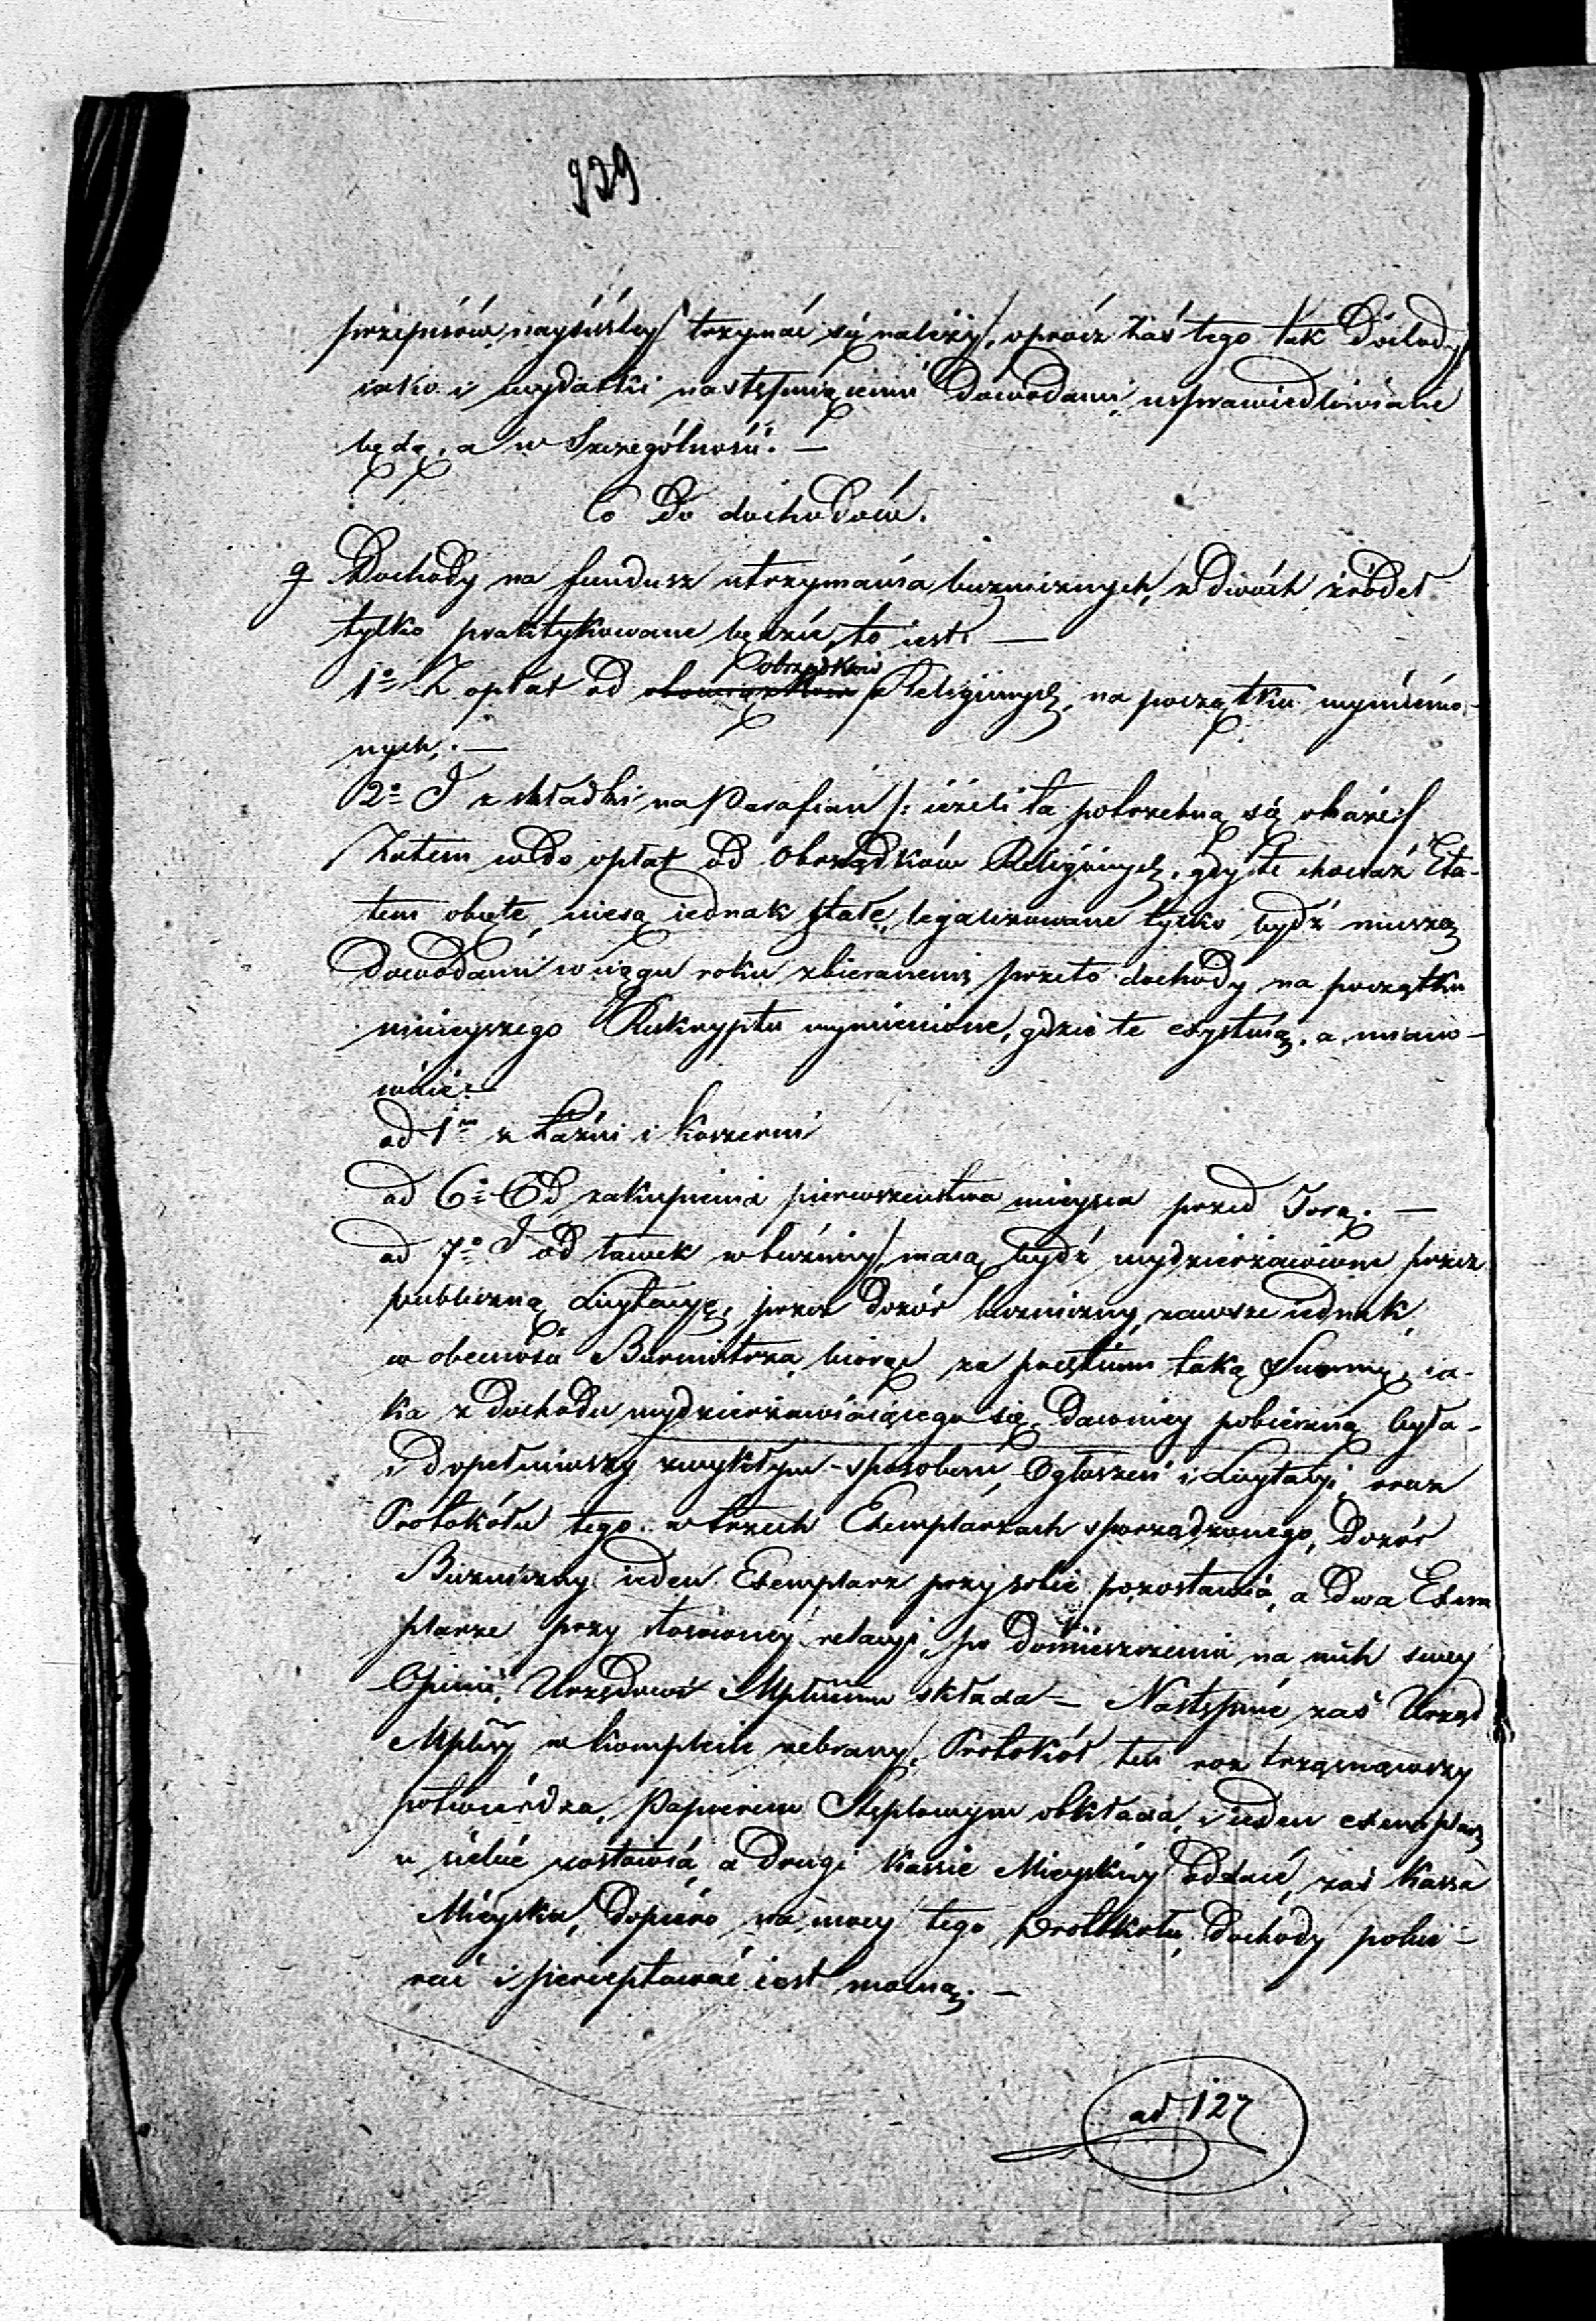 939
przepisów nayściśley trzymać się należy, oprócz zaś tego tak Dochody
iako i wydatki następuiącemi Dowodami usprawiedliwiane
będą, a w Szczególności: —
Co Do dochodów.
9 Dochody na fundusz utrzymania bużnicznych, z dwóch źródeł
tylko praktykowane będzie, to iest: —
1o Z opłat od obowiązków obrządków Religijnych, na początku wymienio-
nych. —
2o I z składki na Parafian /: ieżeli ta potrzebną się okaże /
Zatem w do opłat od Obrządków Religijnych, gdy te chociaż Eta-
tem obięte, niesą iednak stałe, legalizowane tylko bydź muszą
Dowodami w ciągu roku zbieranemi, przeto dochody na początku
ninieyszego Reskryptu wymienione, gdzie te exystuią, a miano-
wicie:
ad 1m z Łaźni i koszerni
ad 6o Od zakupienia pierwszeństwa mieysca przed Torą. —
ad 7o I od ławek w bóżnicy, maią bydź wydzierżawione przez
publiczną Licytacyę, przez Dozór bużniczny, zawsze iednak,
w obecności Burmistrza, biorąc za praetium taką Summę, ia-
ka z Dochodu wydzierżawiaiącego się, Dawniey pobieraną była -
i Dopełniwszy zwykłym sposobem, Ogłoszeń i Licytacyi, oraz
Protokółu tego w trzech Exemplarzach sporządzonego, Dozór
Bużniczny ieden Exemplarz przy sobie pozostawia, a Dwa Exem
plarze przy stosowney relacyi, po Domieszczeniu na nich swey
Opinii, Urzędowi Mplnemu składa — Następnie zaś Urząd
Mplny w komplecie zebrany, Protokół ten roztrząsnąwszy
potwierdza, Papierem Stęplowym obkłada, i ieden exemplarz
u siebie zostawia, a Drugi Kassie Mieyskiey oddaie, zaś Kassa
Mieyska, Dopiero na mocy tego protokołu, Dochody pobie-
rać i perceptować iest mocną. —
ad 127